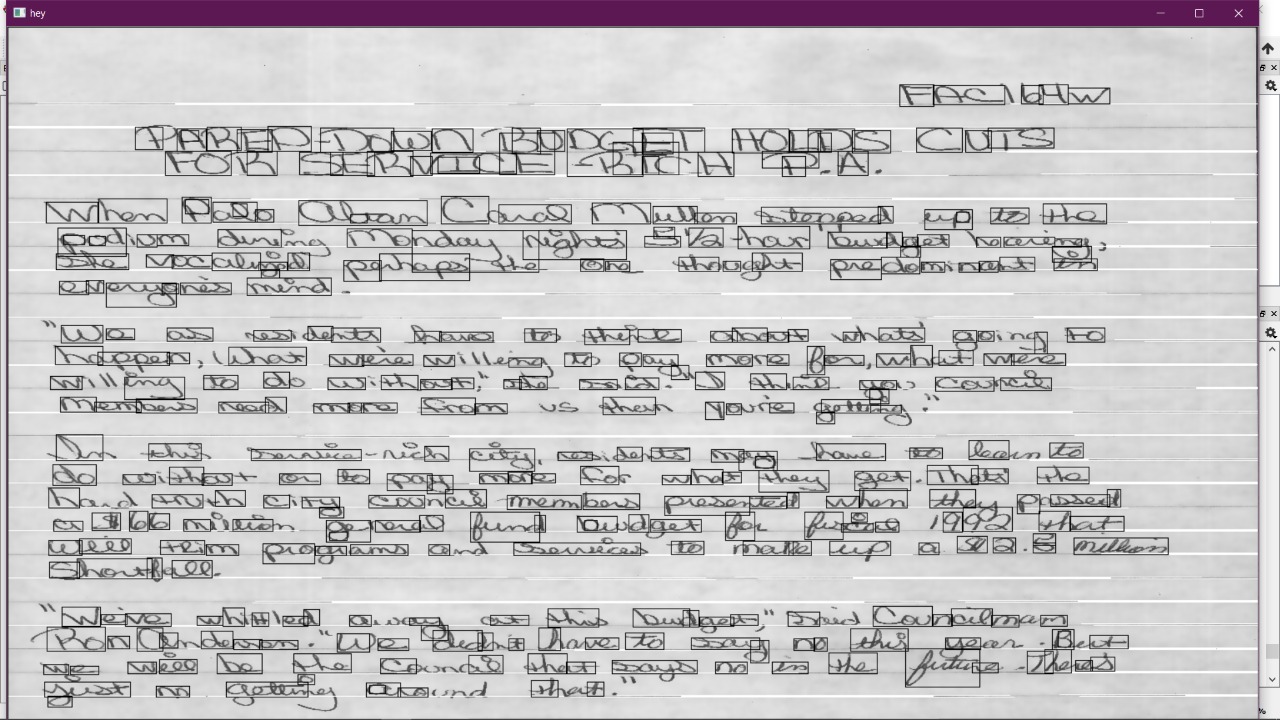 hey
FAC164W
PARED-DOWN BUDGET HOLDS CUTS
FOR SERVICE-RICH P.A.
When Palo Altoan Carol Mullen stepped up to the
podium during Monday nights 5 1/2-hour budget hearing,
she vocalized perhaps the one thought predominant in
everyone's mind.
"We as residents have to think about whats going to
happen, what we're willing to pay more for, what we're
willing to do without," she said. "I think you council
members need more from us than you're getting."
In this service-rich city, residents may have to learn to
do without or to pay more for what they get. Thats the
hard truth city council members presented when they passed
a $66 million general fund budget for fiscal 1992 that
will trim programs and services to make up a $2.5 million
shortfall.
"We've whittled away at this budget," said Councilman
Ron Anderson. "We didn't have to say no this year. But
we will be the council that says no in the future. There's
just no getting around that."